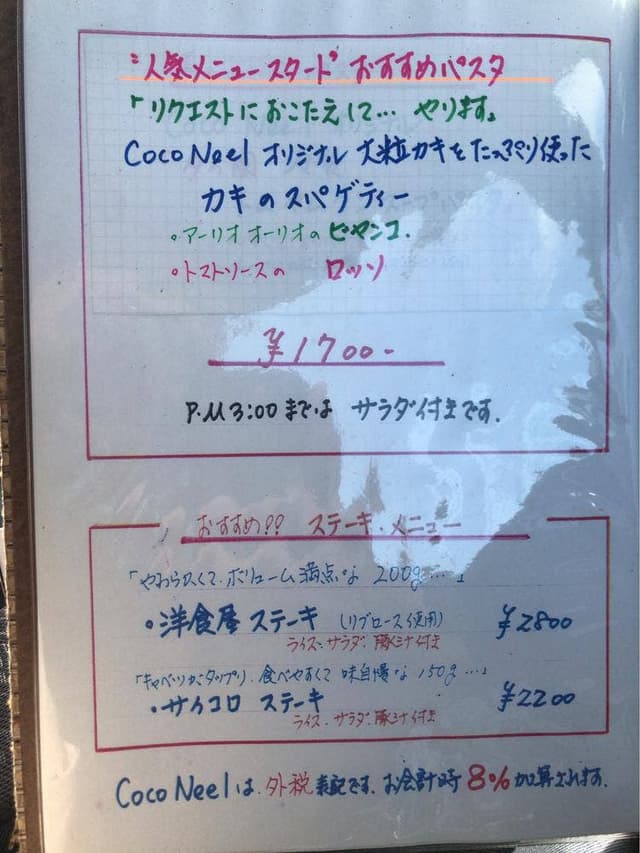 "人気メニュースタート" おすすめパスタ
「リクエストにおこたえして… やります。
Coco Neel オリジナル 大粒カキをたっぷり使った
カキのスパゲティー
・アーリオオーリオの ビヤンコ.
・トマトソースの ロッソ
¥1700-
P.M 3:00 までは サラダ付きです.
おすすめ?? ステーキ・メニュー
「やわらかくて、ボリューム満点な 200g…」
・洋食屋 ステーキ (リブロース使用) ¥2800
ライス、サラダ、豚汁付き
「キャベツがタップリ、食べやすくて 味自慢な 150g…」
・サイコロ ステーキ ¥2200
ライス、サラダ、豚汁付き
Coco Neel は、外税表記です、お会計時 8% 加算されます.